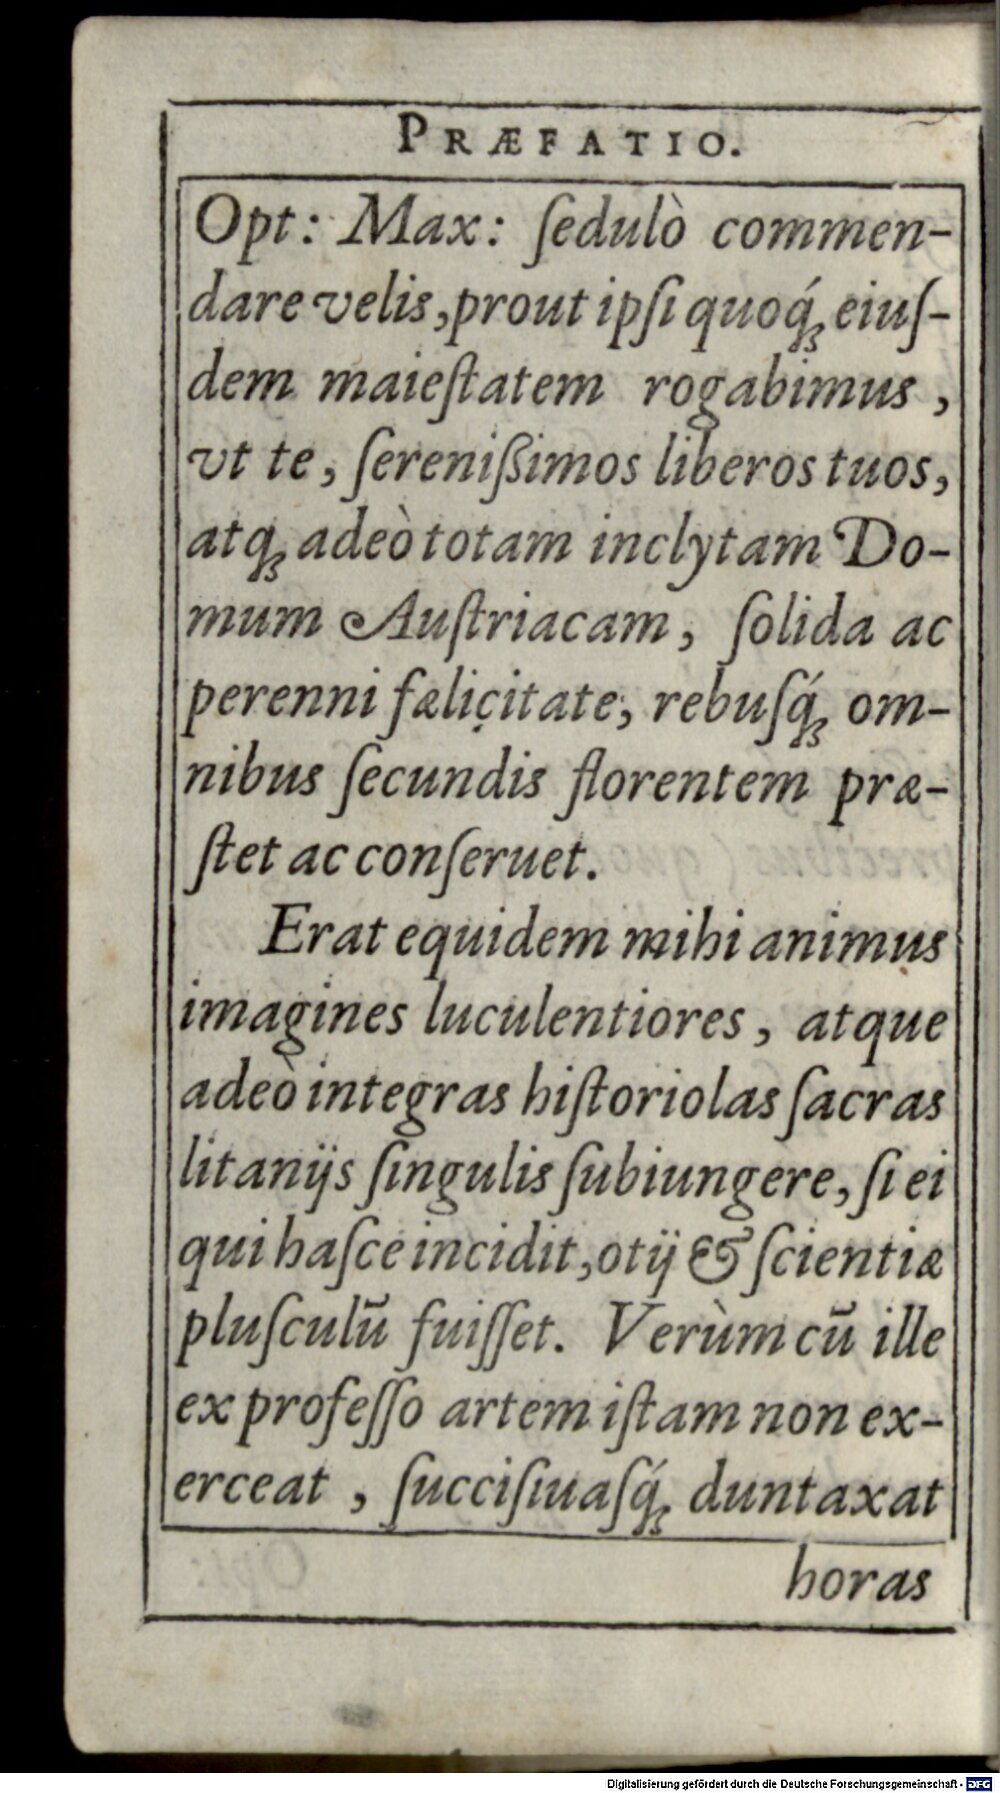 PRÆFATIO.
Opt: Max: ſedulò commen-
dare velis, prout ipſi quoq́ꝫ eiuſ-
dem maieſtatem rogabimus,
vt te, ſereniſſimos liberos tuos,
atqꝫ adeò totam inclytam Do-
mum Auſtriacam, ſolida ac
perenni fælicitate, rebuſq́ꝫ om-
nibus ſecundis florentem præ-
ſtet ac conſeruet.
Erat equidem mihi animus
imagines luculentiores, atque
adeò integras hiſtoriolas ſacras
litanijs ſingulis ſubiungere, ſi ei
qui haſce incidit, otij & ſcientiæ
pluſculū fuiſſet. Verùm cū ille
ex profeſſo artem iſtam non ex-
erceat, ſucciſiuaſq́ꝫ duntaxat
horas
Digitalisierung gefördert durch die Deutsche Forschungsgemeinschaft - DFG